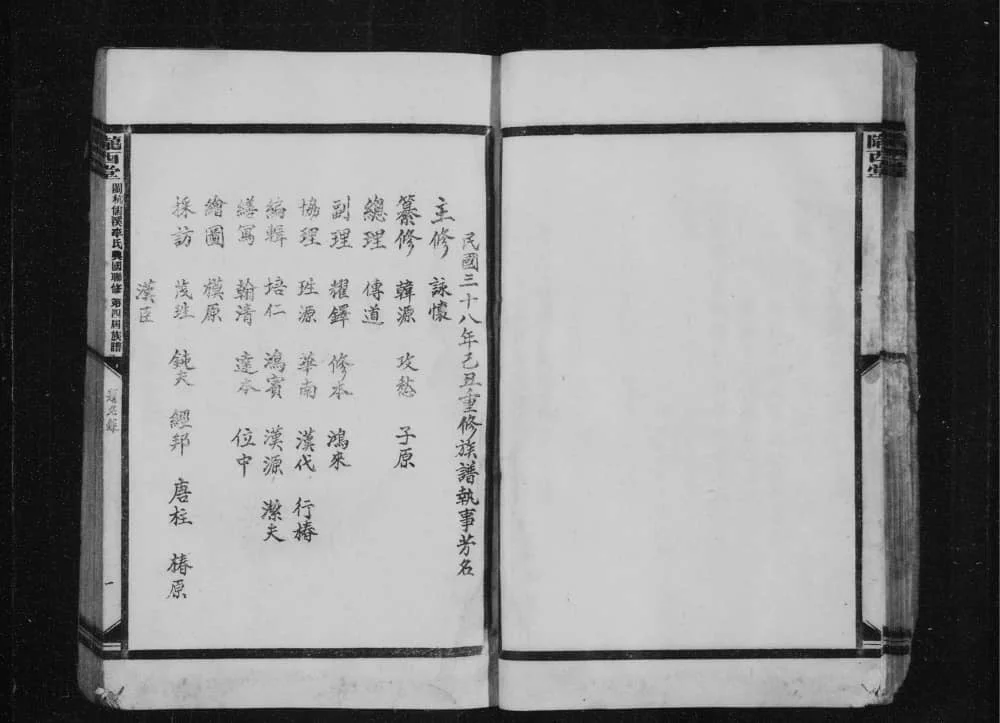 隴西堂
民國三十八年己丑重修族譜執事芳名
主修 詠懷
纂修 韓源 攻愁 子原
總理 傳道
副理 耀鐸 修本 鴻來
協理 珄源 華南 漢代 行椿
編輯 培仁 鴻賓 漢源 潔夫
繕寫 翰清 達本 位中
繪圖 模原
採訪 茂珄 鈍夫 經邦 唐柱 椿原
漢臣
隴西堂
李氏興國聯修 第四屆族譜
題名錄
一